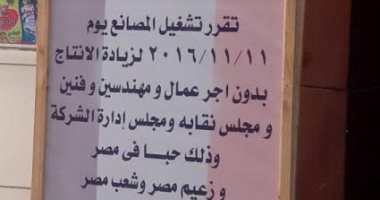 تقرر تشغيل المصانع يوم
٢٠١٦/١١/١١ لزيادة الانتاج
بدون اجر عمال و مهندسين و فنين
و مجلس نقابه ومجلس إدارة الشركة
وذلك حبا فى مصر
و زعيم مصر وشعب مصر